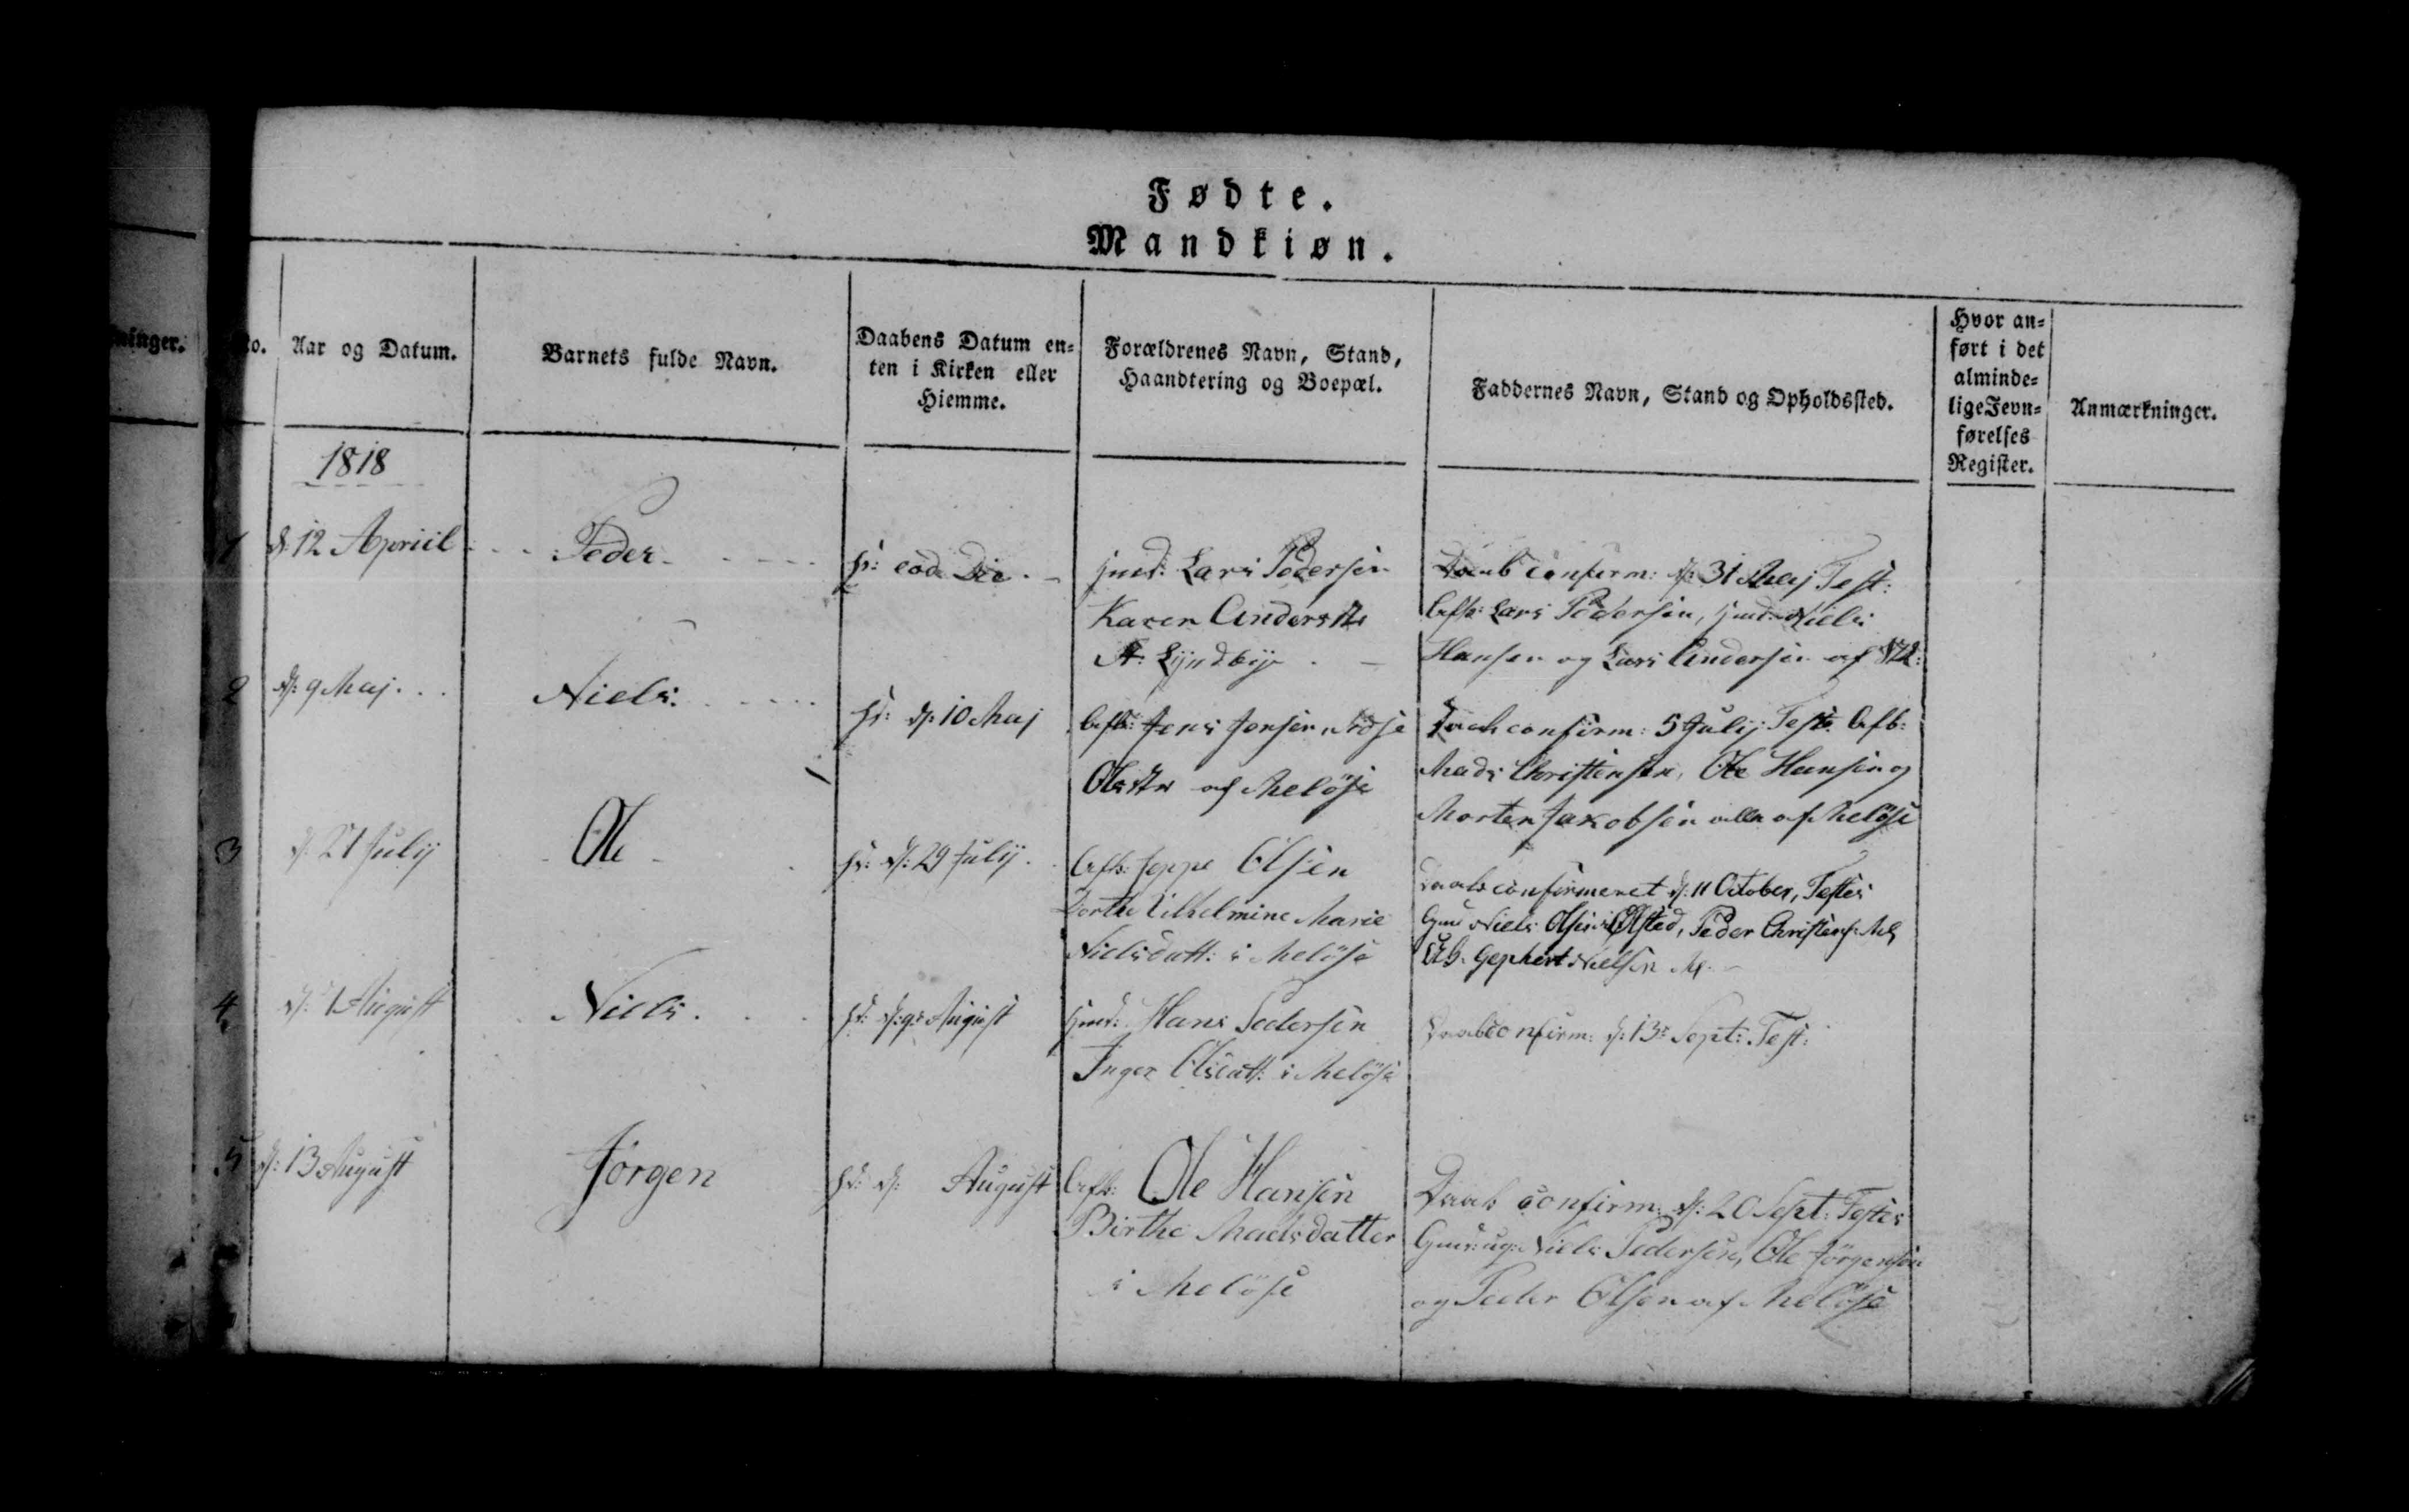 Fødte.
Mandkiøn.
ninger.
No.
Aar og Datum.
Barnets fulde Navn.
Daabens Datum en-
ten i Kirken eller
Hiemme.
Forældrenes Navn, Stand,
Haandtering og Boepæl.
Faddernes Navn, Stand og Opholdssted.
Hvor an-
ført i det
alminde-
lige Jevn-
førelses
Register.
Anmærkninger.
1818
1 d: 12 Apriil
Peder
eod Die
Lars Pedersen
Karen Anders
St: Lyndbye
Daab confirm: d: 31 Maj Test:
Lars Pedersen, Niels
Hansen og Lars Andersen af
2 d: 9 Maj
Niels
d: 10 Maj
Jens Jensen
af Meløse
Daab confirm: 5 July Test:
Mads Christensen, Ole Hansen og
Morten Jakobsen alle af Meløse
3 d: 27 July
Ole
d: 29 July
Jeppe Olsen
Dorthe Vilhelmine Marie
Nielsdatt: i Meløse
Daab confirmeret d: 11 October, Testes
Niels Olsen i Ølsted, Peder
Gephert Nielsen
4 d: 1 August
Niels
d: 9 August
Hans Pedersen
Inger Olsdatt: i Meløse
Daab confirm: d: 13 Sept: Test:
5 d: 13 August
Jørgen
d: August
Ole Hansen
Birthe Madsdatter
i Meløse
Daab confirm: d: 20 Sept: Testes
Niels Pedersen, Ole Jørgensen
og Peder Olsen af Meløse